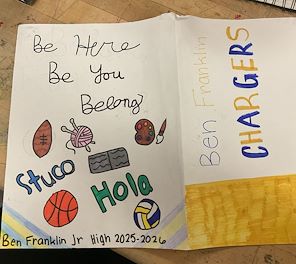 Be Here
Be You
Belong
Stuco
Hola
Ben Franklin Jr High 2025-2026
Ben Franklin
CHARGERS